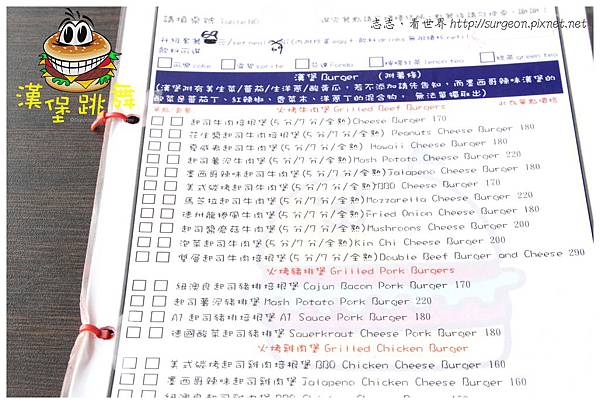 志志·看世界 http://surgeon.pixnet.net
漢堡跳舞
漢堡 Burger (附薯條)
(漢堡附有美生菜/蕃茄/生洋蔥/酸黃瓜，若不添加請先告知，而墨西哥辣味漢堡的
酸菜是蕃茄丁、紅辣椒、香菜末、洋蔥丁的混合物，無法單獨取出)
火烤牛肉堡 Grilled Beef Burgers
起司牛肉培根堡(5分/7分/全熟)Cheese Burger 170
花生醬起司牛肉堡(5分/7分/全熟) Peanuts Cheese Burger 180
夏威夷起司牛肉堡(5分/7分/全熟) Hawaii Cheese Burger 180
起司薯泥牛肉堡(5分/7分/全熟)Mash Potato Cheese Burger 220
墨西哥辣味起司牛肉堡(5分/7分/全熟)Jalapeno Cheese Burger 180
美式碳烤起司牛肉堡(5分/7分/全熟)BBQ Cheese Burger 170
馬芝拉起司牛肉堡(5分/7分/全熟)Mozzarella Cheese Burger 220
德州龍捲風牛肉堡(5分/7分/全熟)Fried Onion Cheese Burger 180
起司醬蘑菇牛肉堡(5分/7分/全熟)Mushrooms Cheese Burger 200
泡菜起司牛肉堡(5分/7分/全熟)Kin Chi Cheese Burger 200
雙層起司牛肉培根堡(5分/7分/全熟)Double Beef Burger and Cheese 290
火烤豬排堡 Grilled Pork Burgers
紐澳良起司豬排培根堡 Cajun Bacon Pork Burger 170
起司薯泥豬排堡 Mash Potato Pork Burger 220
A1 起司豬排培根堡 A1 Sauce Pork Burger 180
德國酸菜起司豬排堡 Sauerkraut Cheese Pork Burger 180
火烤雞肉堡 Grilled Chicken Burger
美式碳烤起司雞肉培根堡 BBQ Chicken Cheese Burger 160
墨西哥辣味起司雞肉堡 Jalapeno Chicken Cheese Burger 160